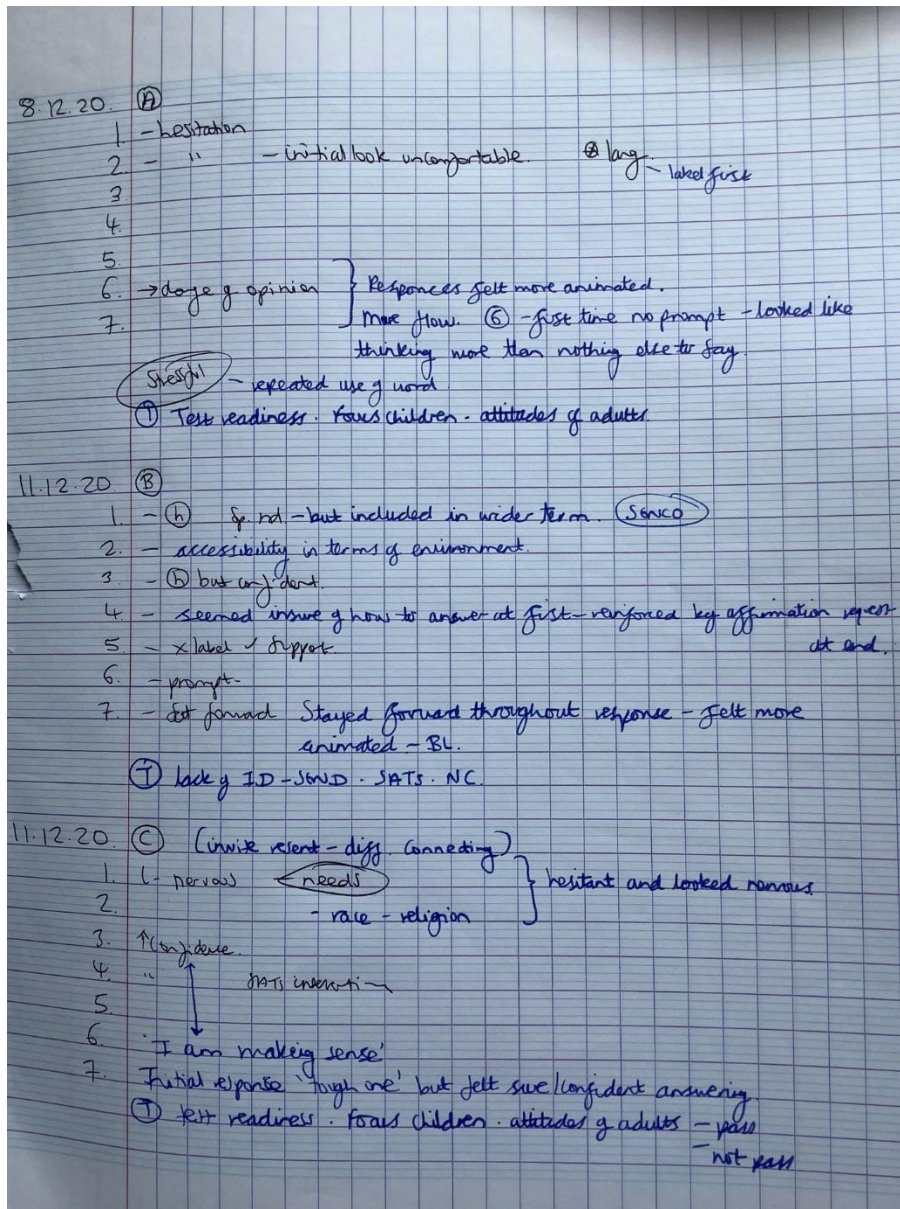 8.12.20. Ⓐ
1 - hesitation
2 - " - initial look uncomfortable. lang.
- label first
3
4.
5.
6. → of opinion } Responces felt more animated.
7. More flow. ⑥ - first time no prompt - looked like
thinking more than nothing else to say.
Stressful - repeated use of word
Ⓣ Test readiness. Focus children - attitudes of adults.
11.12.20 Ⓑ
1. - ⓗ - but included in wider term. SENCO
2. - accessibility in terms of environment.
3 - ⓗ but confident.
4 - seemed insure of how to answer at first - reinforced by affirmation request
at end.
5 - x label ✓ support
6. - prompt -
7. - forward Stayed forward throughout response - felt more
animated - BL.
Ⓣ lack of ID - SEND. SATs. NC.
11.12.20. Ⓒ (invite resent - diff. connecting)
1. - nervous needs } hesitant and looked nervous
2. - race - religion
3. ↑ Confidence.
4. " SATs
5.
6. 'I am making sense'
7. Initial response 'tough one' but felt sure/confident answering
Ⓣ test readiness. Focus children. attitudes of adults - pass
- not pass